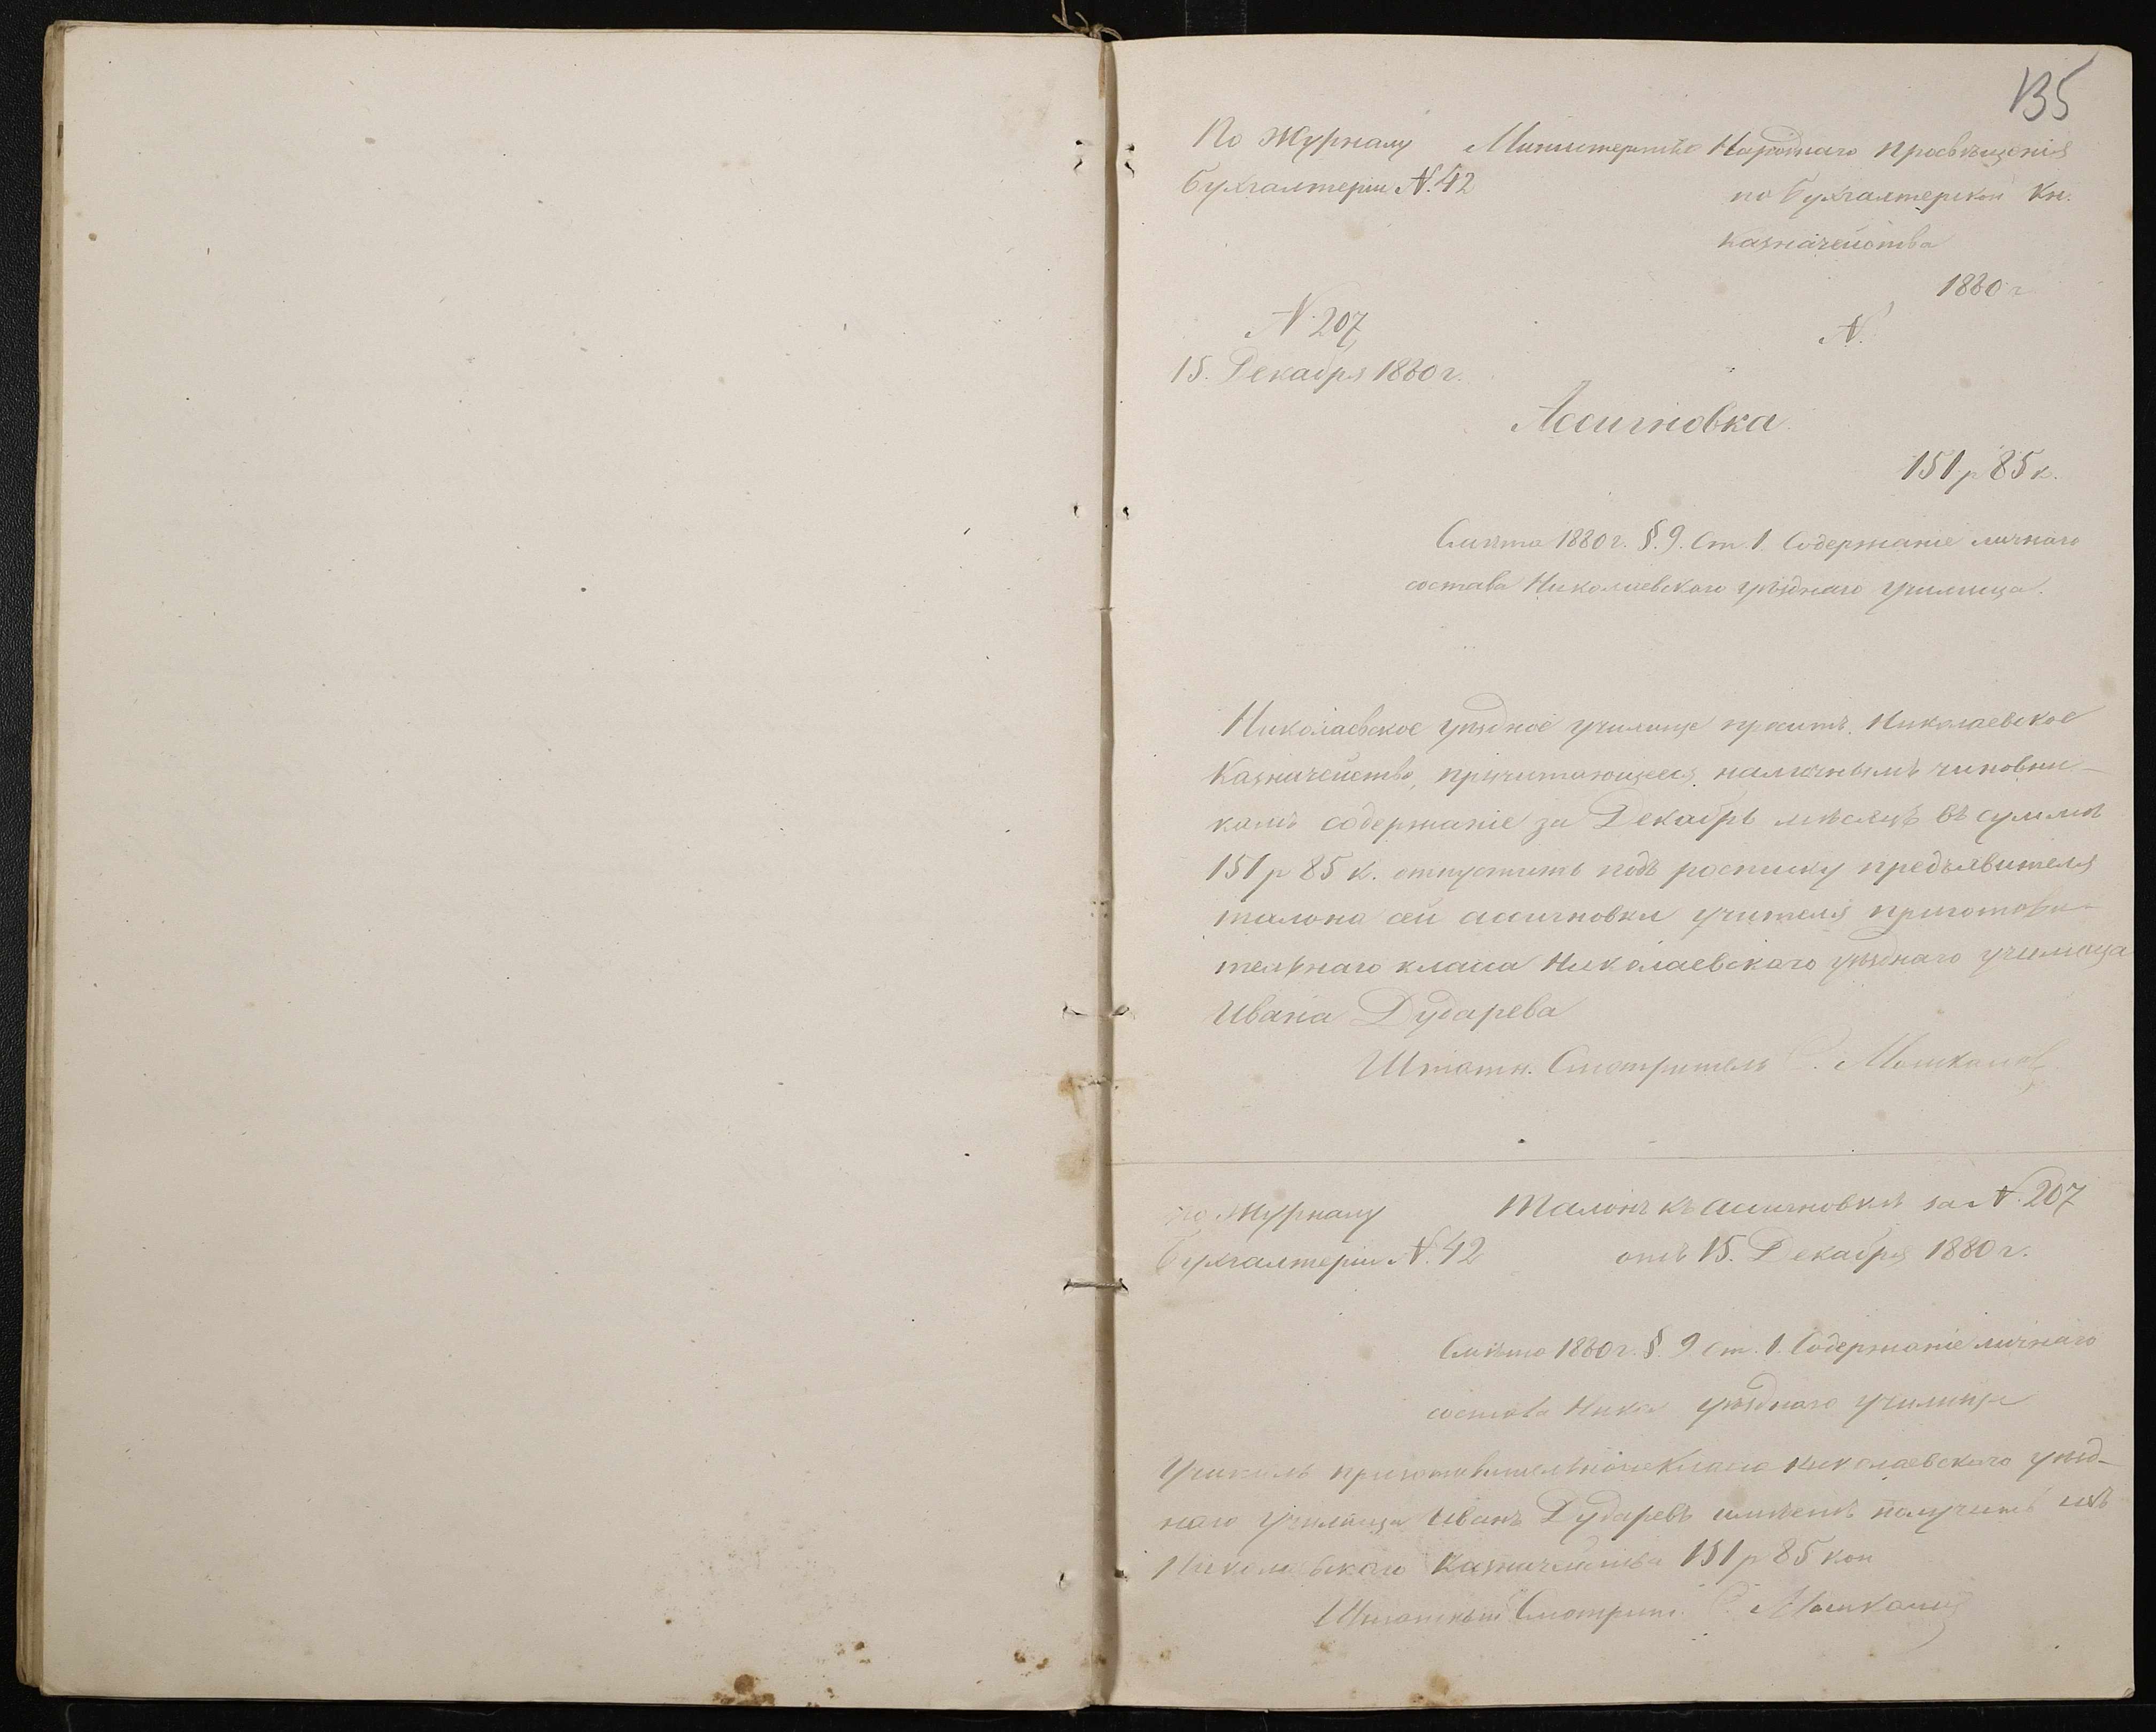 135
По Журналу
Бухгалтеріи N. 42
Министерство Народнаго Просвѣщенія
по Бухгалтерской Кн.
Казначейства
1880 г.
N.
N. 207
15. Декабря 1880 г.
Ассигновка
151 р 85 к.
Смѣта 1880 г. §. 9. Ст. 1. Содержаніе личнаго
состава Николаевскаго уѣзднаго училища.
Николаевское уѣздное училище проситъ Николаевское
Казначейство, причитающееся наличнымъ чиновни-
камъ содержаніе за Декабрь мѣсяцъ въ суммѣ
151 р 85 к. отпустить подъ росписку предъявителя
талона сей ассигновки учителя приготови-
тельнаго класса Николаевскаго уѣзднаго училища
Ивана Дударева
Штатн. Смотритель
По Журналу
Бухгалтеріи N. 42
Талонъ къ ассигновкѣ за N. 207
отъ 15. Декабря 1880 г.
Смѣта 1880 г. §. 9 ст. 1. Содержаніе личнаго
состава Никол уѣзднаго училища
Учитель приготовительнаго класса Николаевскаго уѣзд-
наго училища Иванъ Дударевъ имѣетъ получить изъ
Николаевскаго Казначейства 151 р 85 коп
Штатный Смотрит.